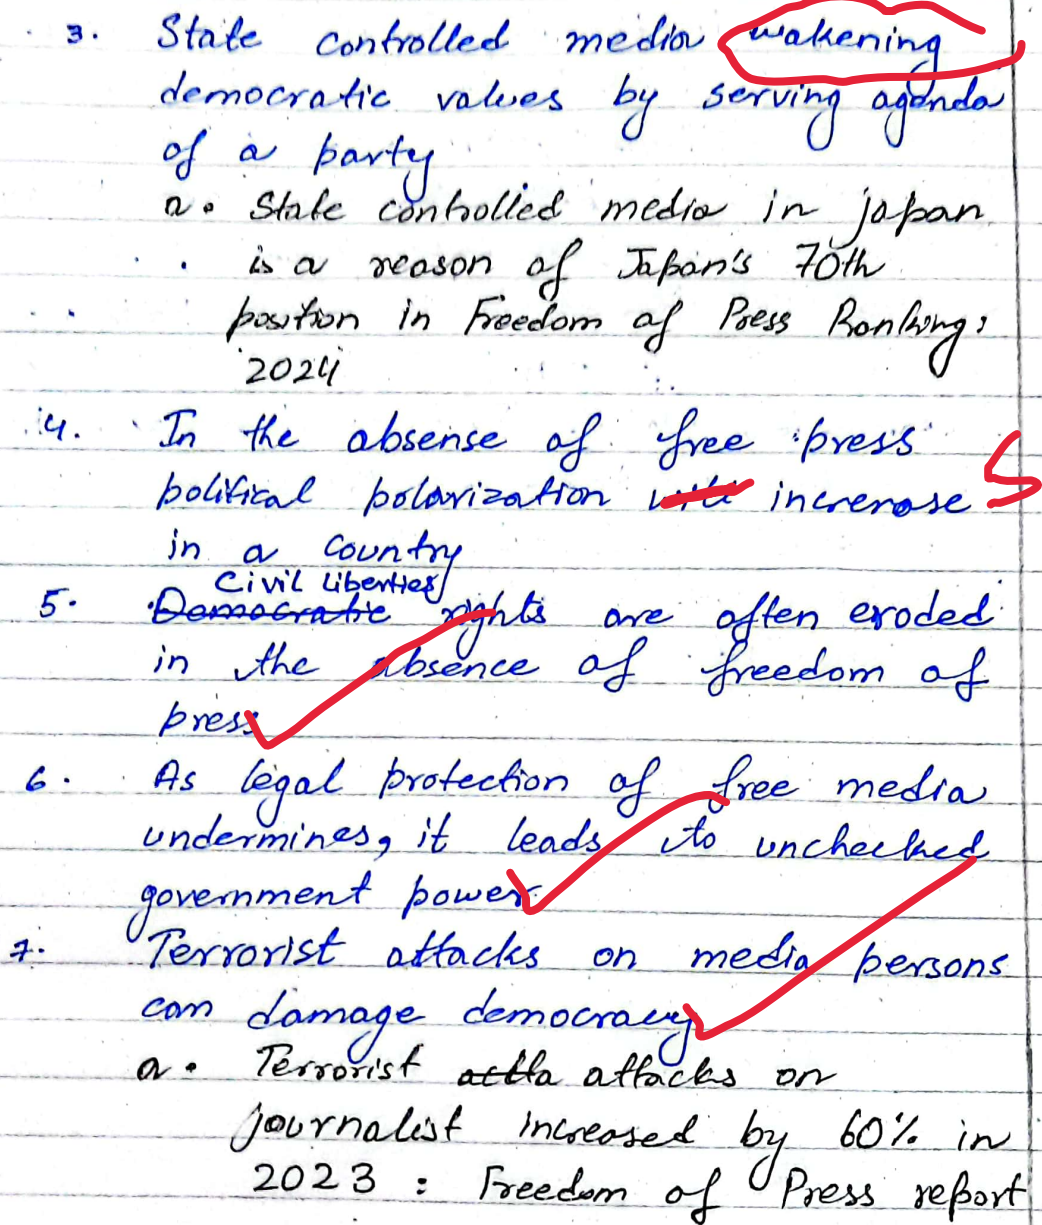 3. State controlled media wakening
democratic values by serving agenda
of a party
a. State controlled media in japan
is a reason of Japan's 70th
position in Freedom of Press Ranking:
2024
4. In the absense of free press
political polarization will increase S
in a country
Civil liberties
5. Democratic rights are often eroded
in the absence of freedom of
press
6. As legal protection of free media
undermines, it leads to unchecked
government power.
7. Terrorist attacks on media persons
can damage democracy
a. Terrorist atta attacks on
journalist increased by 60% in
2023 : Freedom of Press report